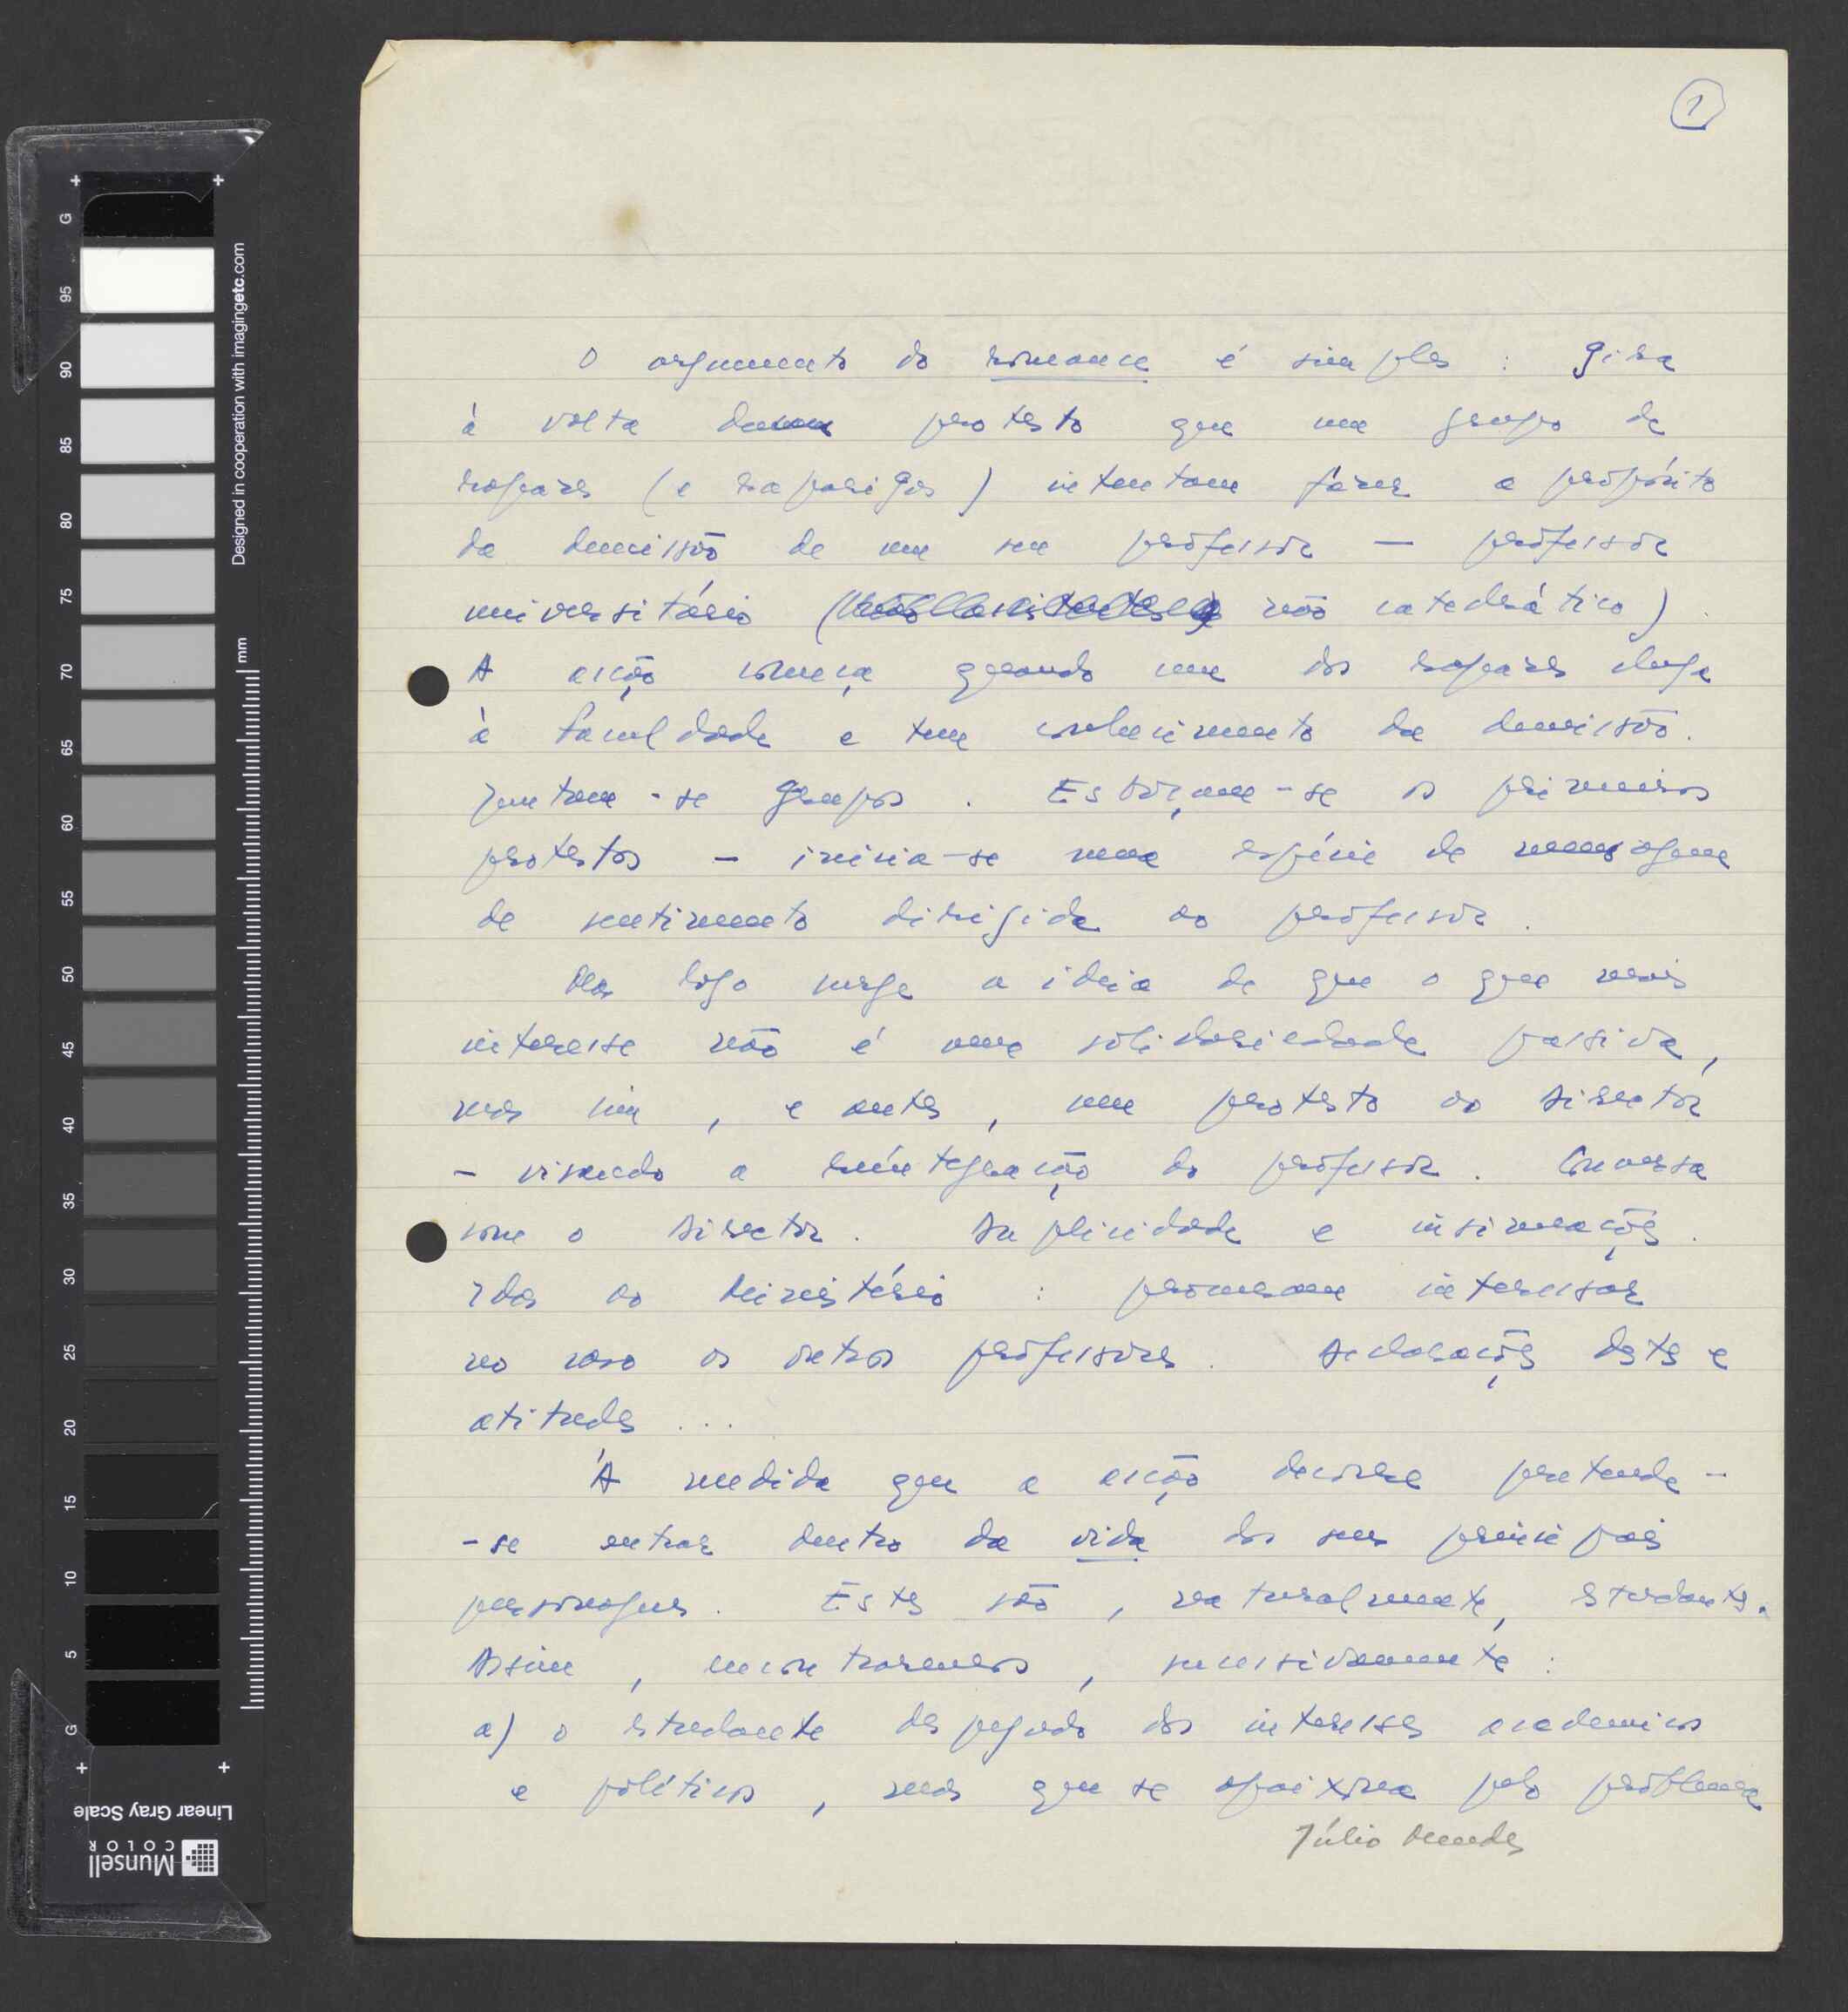 1
O argumento do romance é simples : gira
à volta dum protesto que um grupo de
rapazes (e raparigas) intentam fazer a propósito
da demissão de um seu professor — professor
universitário ( não catedrático) .
A acção começa quando um dos rapazes chega
à faculdade e tem conhecimento da demissão.
Juntam-se grupos . Esboçam-se os primeiros
protestos — inicia-se uma espécie de
de sentimento dirigida ao professor .
Mas logo surge a ideia de que o que mais
interessa não é uma solidariedade passiva,
mas sim , e antes , um protesto ao director
— visando a reintegração do professor . Conversa
com o director . Duplicidade e insinuações .
Idas ao Ministério : procuram interessar
no caso os outros professores . Declarações destes e
atitudes ...
À medida que a acção decorre pretende-
-se entrar dentro da vida dos seus principais
personagens . Estes são , naturalmente, estudantes.
Assim , encontraremos , sucessivamente :
a) o estudante despegado dos interesses academicos
e políticos , mas que se apaixona pelo problema
Júlio Mendes
G
95
90
85
80
75
70
65
60
55
50
45
40
35
30
25
20
15
10
5
G
mm
Designed in cooperation with imagingetc.com
Linear Gray Scale
Munsell
COLOR